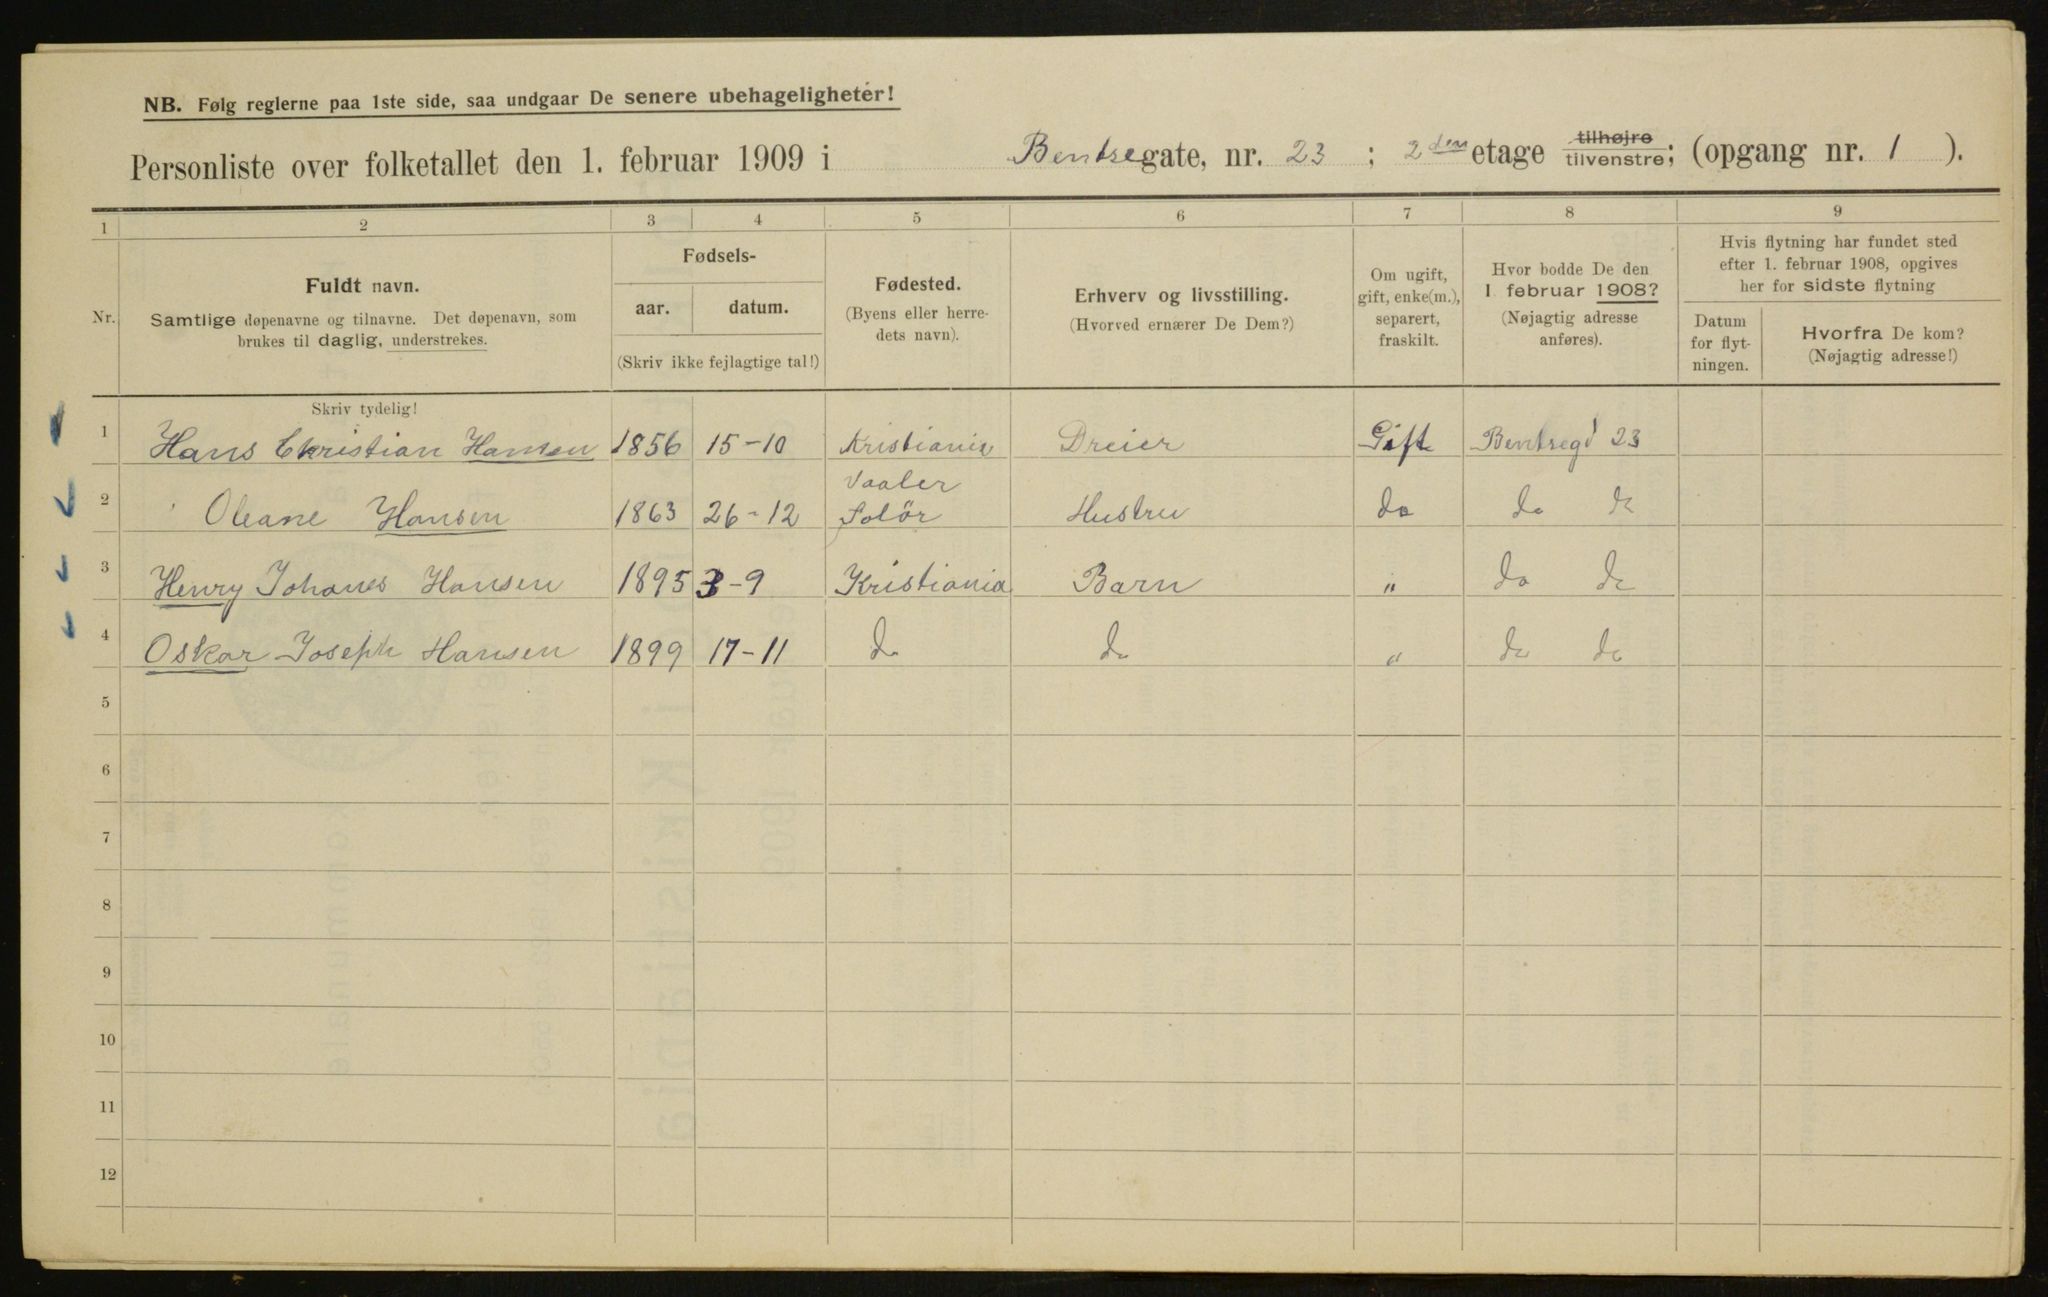 NB. Følg reglerne paa 1ste side, saa undgaar De senere ubehageligheter!
Personliste over folketallet den 1. februar 1909 i Bentsegate, nr. 23 ; 2den etage tilhøjre tilvenstre; (opgang nr. 1 ).
1 2 3 4 5 6 7 8 9
Nr.
Fuldt navn.
Samtlige døpenavne og tilnavne. Det døpenavn, som
brukes til daglig, understrekes.
Fødsels-
aar. datum.
(Skriv ikke fejlagtige tal!)
Fødested.
(Byens eller herre-
dets navn).
Erhverv og livsstilling.
(Hvorved ernærer De Dem?)
Om ugift,
gift, enke(m.),
separert,
fraskilt.
Hvor bodde De den
1 februar 1908?
(Nøjagtig adresse
anføres).
Hvis flytning har fundet sted
efter 1. februar 1908, opgives
her for sidste flytning
Datum
for flyt-
ningen.
Hvorfra De kom?
(Nøjagtig adresse!)
Skriv tydelig!
1 Hans Christian Hansen 1856 15-10 Kristiania Dreier Gift Bentsegd 23
2 Oleane Hansen 1863 26-12 Vaaler Solör Hustru do do do
3 Henry Johanes Hansen 1895 3-9 Kristiania Barn " do do
4 Oskar Joseph Hansen 1899 17-11 do do " do do
5
6
7
8
9
10
11
12